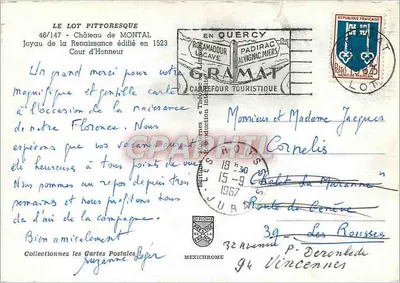 LE LOT PITTORESQUE
46/147 - Château de MONTAL
Joyau de la Renaissance édifié en 1523
Cour d'Honneur
EN QUERCY
ROCAMADOUR PADIRAC
LACAVE ALVIGNAC, MIERS
GRAMAT
CARREFOUR TOURISTIQUE
REPUBLIQUE FRANÇAISE
0,25
LOT
Un grand merci pour votre
magnifique et gentille carte
à l'occasion de la naissance
de notre Florence. Nous
espérons que vos vacances
de heureuses à tous points de vue
Nous pommes au repos depuis trois
semaines et nous
de l'air de la campagne.
Bien amicalement
Suzanne
Monsieur et Madame Jacques
Cornelis
Chalet La Maranne
Route de Genève
39 Les Rousses
32 Avenue P. Deroulede
94 Vincennes
LES ROUSSES
18 H 30
15-9
1967
JURA
Collectionnez les Cartes Postales
MEXICHROME
DELCAMPE